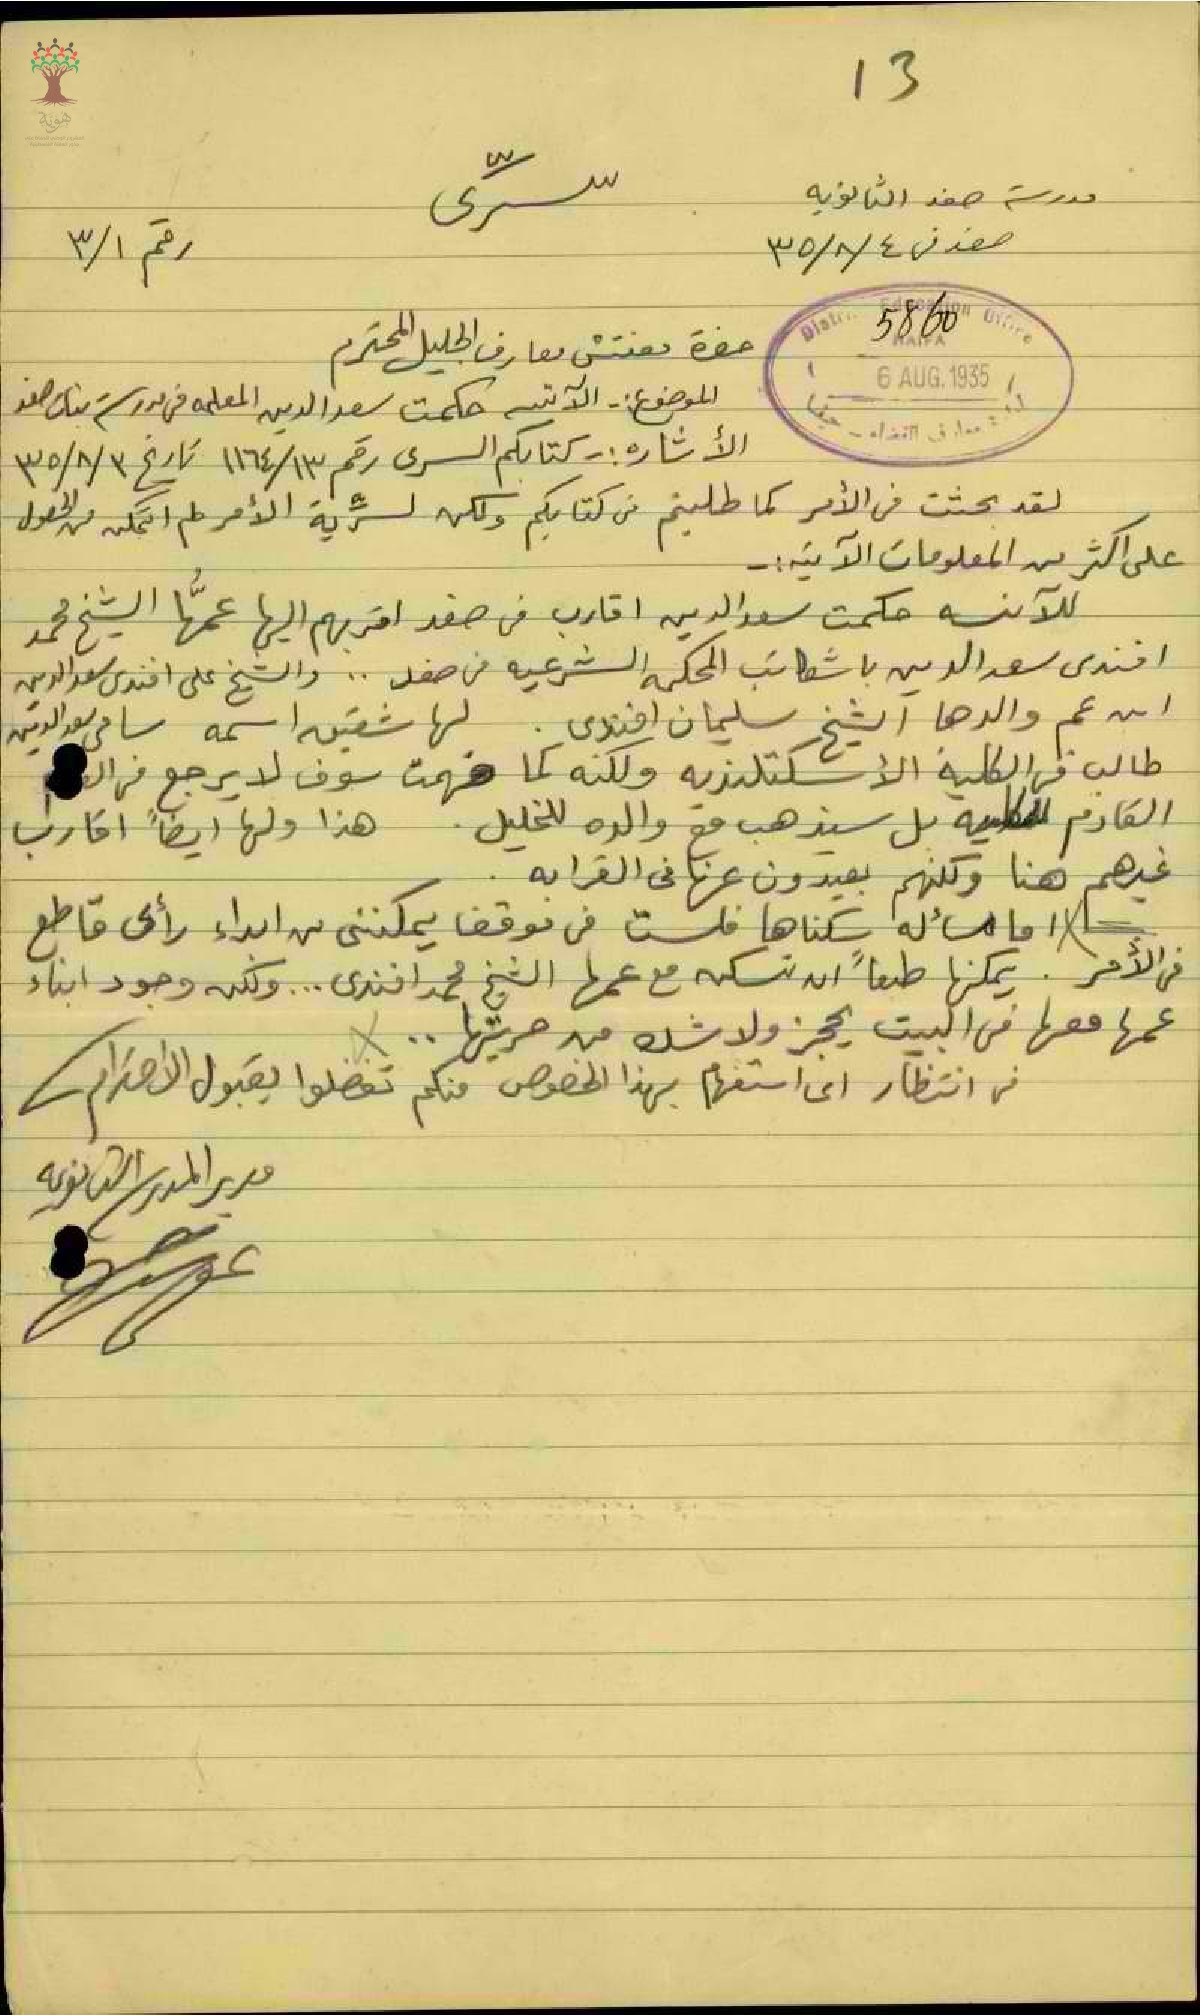 13
سرّى
مدرسة صفد الثانويه
صفد فى ٣٥/٨/٤
رقم ٣/١
District Education Office
HAIFA
5860
6 AUG. 1935
ادارة معارف القضاء - حيفا
هوية
حضرة مفتش معارف الجليل المحترم
الموضوع :- الآنسه حكمت سعد الدين المعلمه فى مدرسة بنات صفد
الأشاره :- كتابكم السرى رقم ١١٦٤/١٣ تاريخ ٣٥/٨/٣
لقد بحثت فى الأمر كما طلبتم فى كتابكم ولكن لسرّية الأمر لم اتمكن من الحصول
على اكثر من المعلومات الآتية :-
للآنسه حكمت سعد الدين اقارب فى صفد اقربهم اليها عمّها الشيخ محمد
افندى سعد الدين باشكاتب المحكمه الشرعيه فى صفد .. والشيخ على افندى سعد الدين
ابن عم والدها الشيخ سليمان افندى . لها شقيق اسمه سامى سعد الدين
طالب فى الكلية الأسكتلنديه ولكنه كما فهمت سوف لا يرجع فى
القادم للكليه بل سيذهب مع والده للخليل . هذا ولها ايضاً اقارب
غيرهم هنا ولكنهم بعيدون عنها فى القرابه .
اما مسأله سكناها فلست فى موقف يمكننى من ابداء رأى قاطع
فى الأمر . يمكنها طبعاً ان تسكن مع عمها الشيخ محمد افندى ... ولكن وجود ابناء
عمها معها فى البيت يحجز ولا شك من حريتها ..
فى انتظار اى استفهام بهذا الخصوص منكم تفضلوا بقبول الأحترام
مدير المدرسة الثانويه